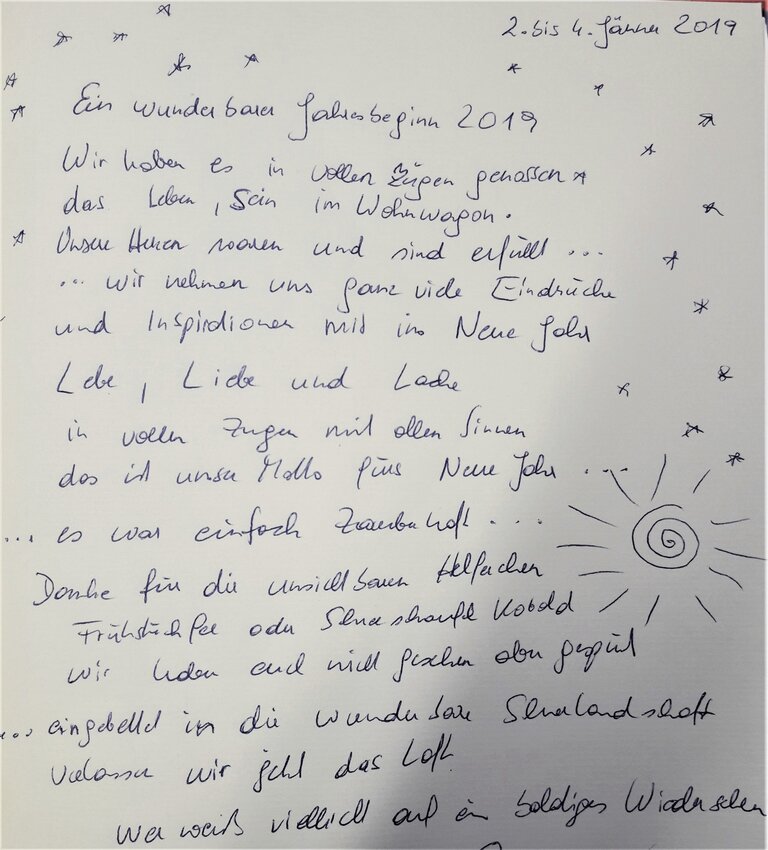 2. bis 4. Jänner 2019
Ein wunderbarer Jahresbeginn 2019
Wir haben es in vollen Zügen genossen
das Leben, Sein im Wohnwagon.
Unsere Herzen waren und sind erfüllt ...
... wir nehmen uns ganz viele Eindrücke
und Inspirationen mit ins Neue Jahr
Lebe, Liebe und Lache
in vollen Zügen mit allen Sinnen
das ist unser Motto fürs Neue Jahr ...
... es war einfach Zauberhaft ...
Danke für die unsichtbaren Helferchen
Frühstückfee oder Schneeschaufel Kobold
wir haben euch nicht gesehen aber gespürt
... eingebettet in die wunderbare Schneelandschaft
verlassen wir jetzt das Loft
Wer weiß vielleicht auf ein baldiges Wiedersehen